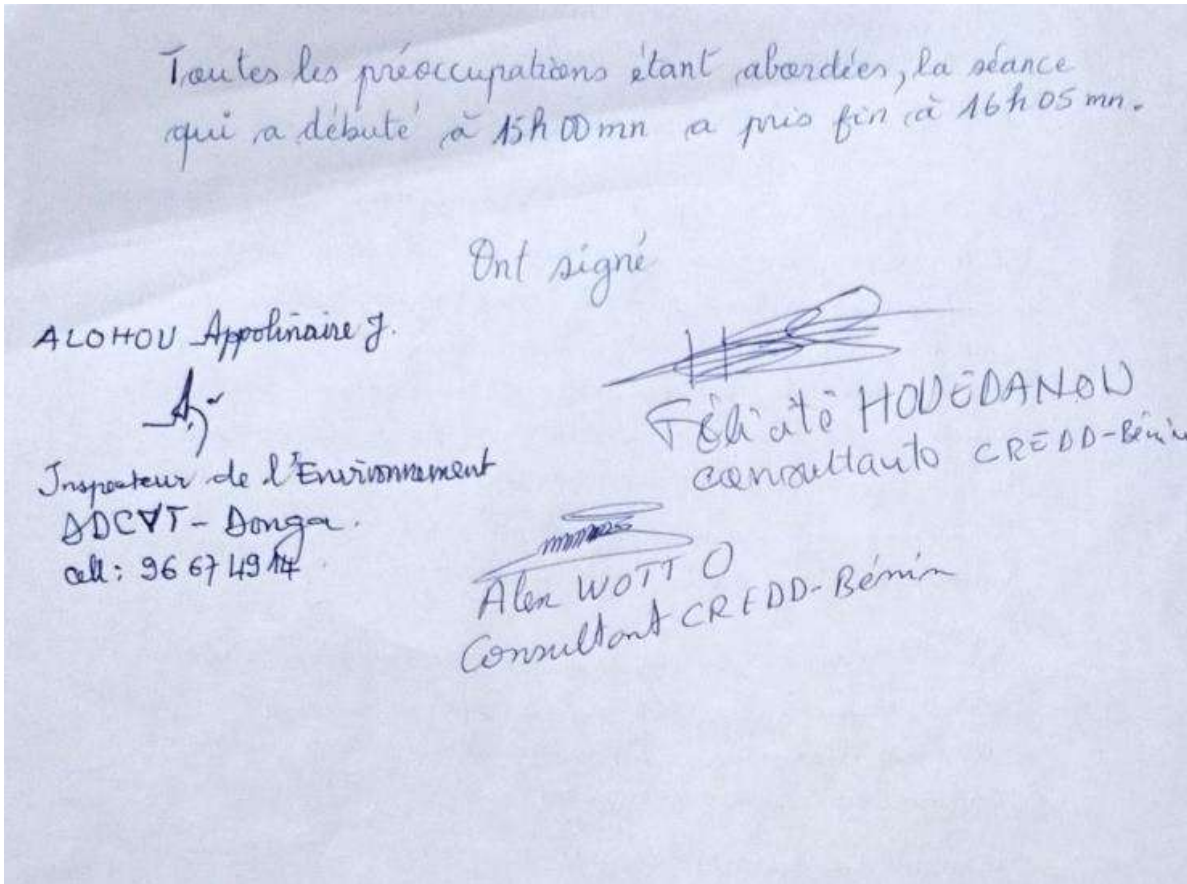 Toutes les préoccupations étant abordées, la séance
qui a débuté à 15h00mn a pris fin à 16h05mn.
Ont signé
ALOHOU Appolinaire J.
Inspecteur de l'Environnement
DDCVT - Donga.
cell: 96 67 49 14
Félicité HOUÉDANOU
consultante CREDD-Bénin
Alex WOTTO
Consultant CREDD-Bénin